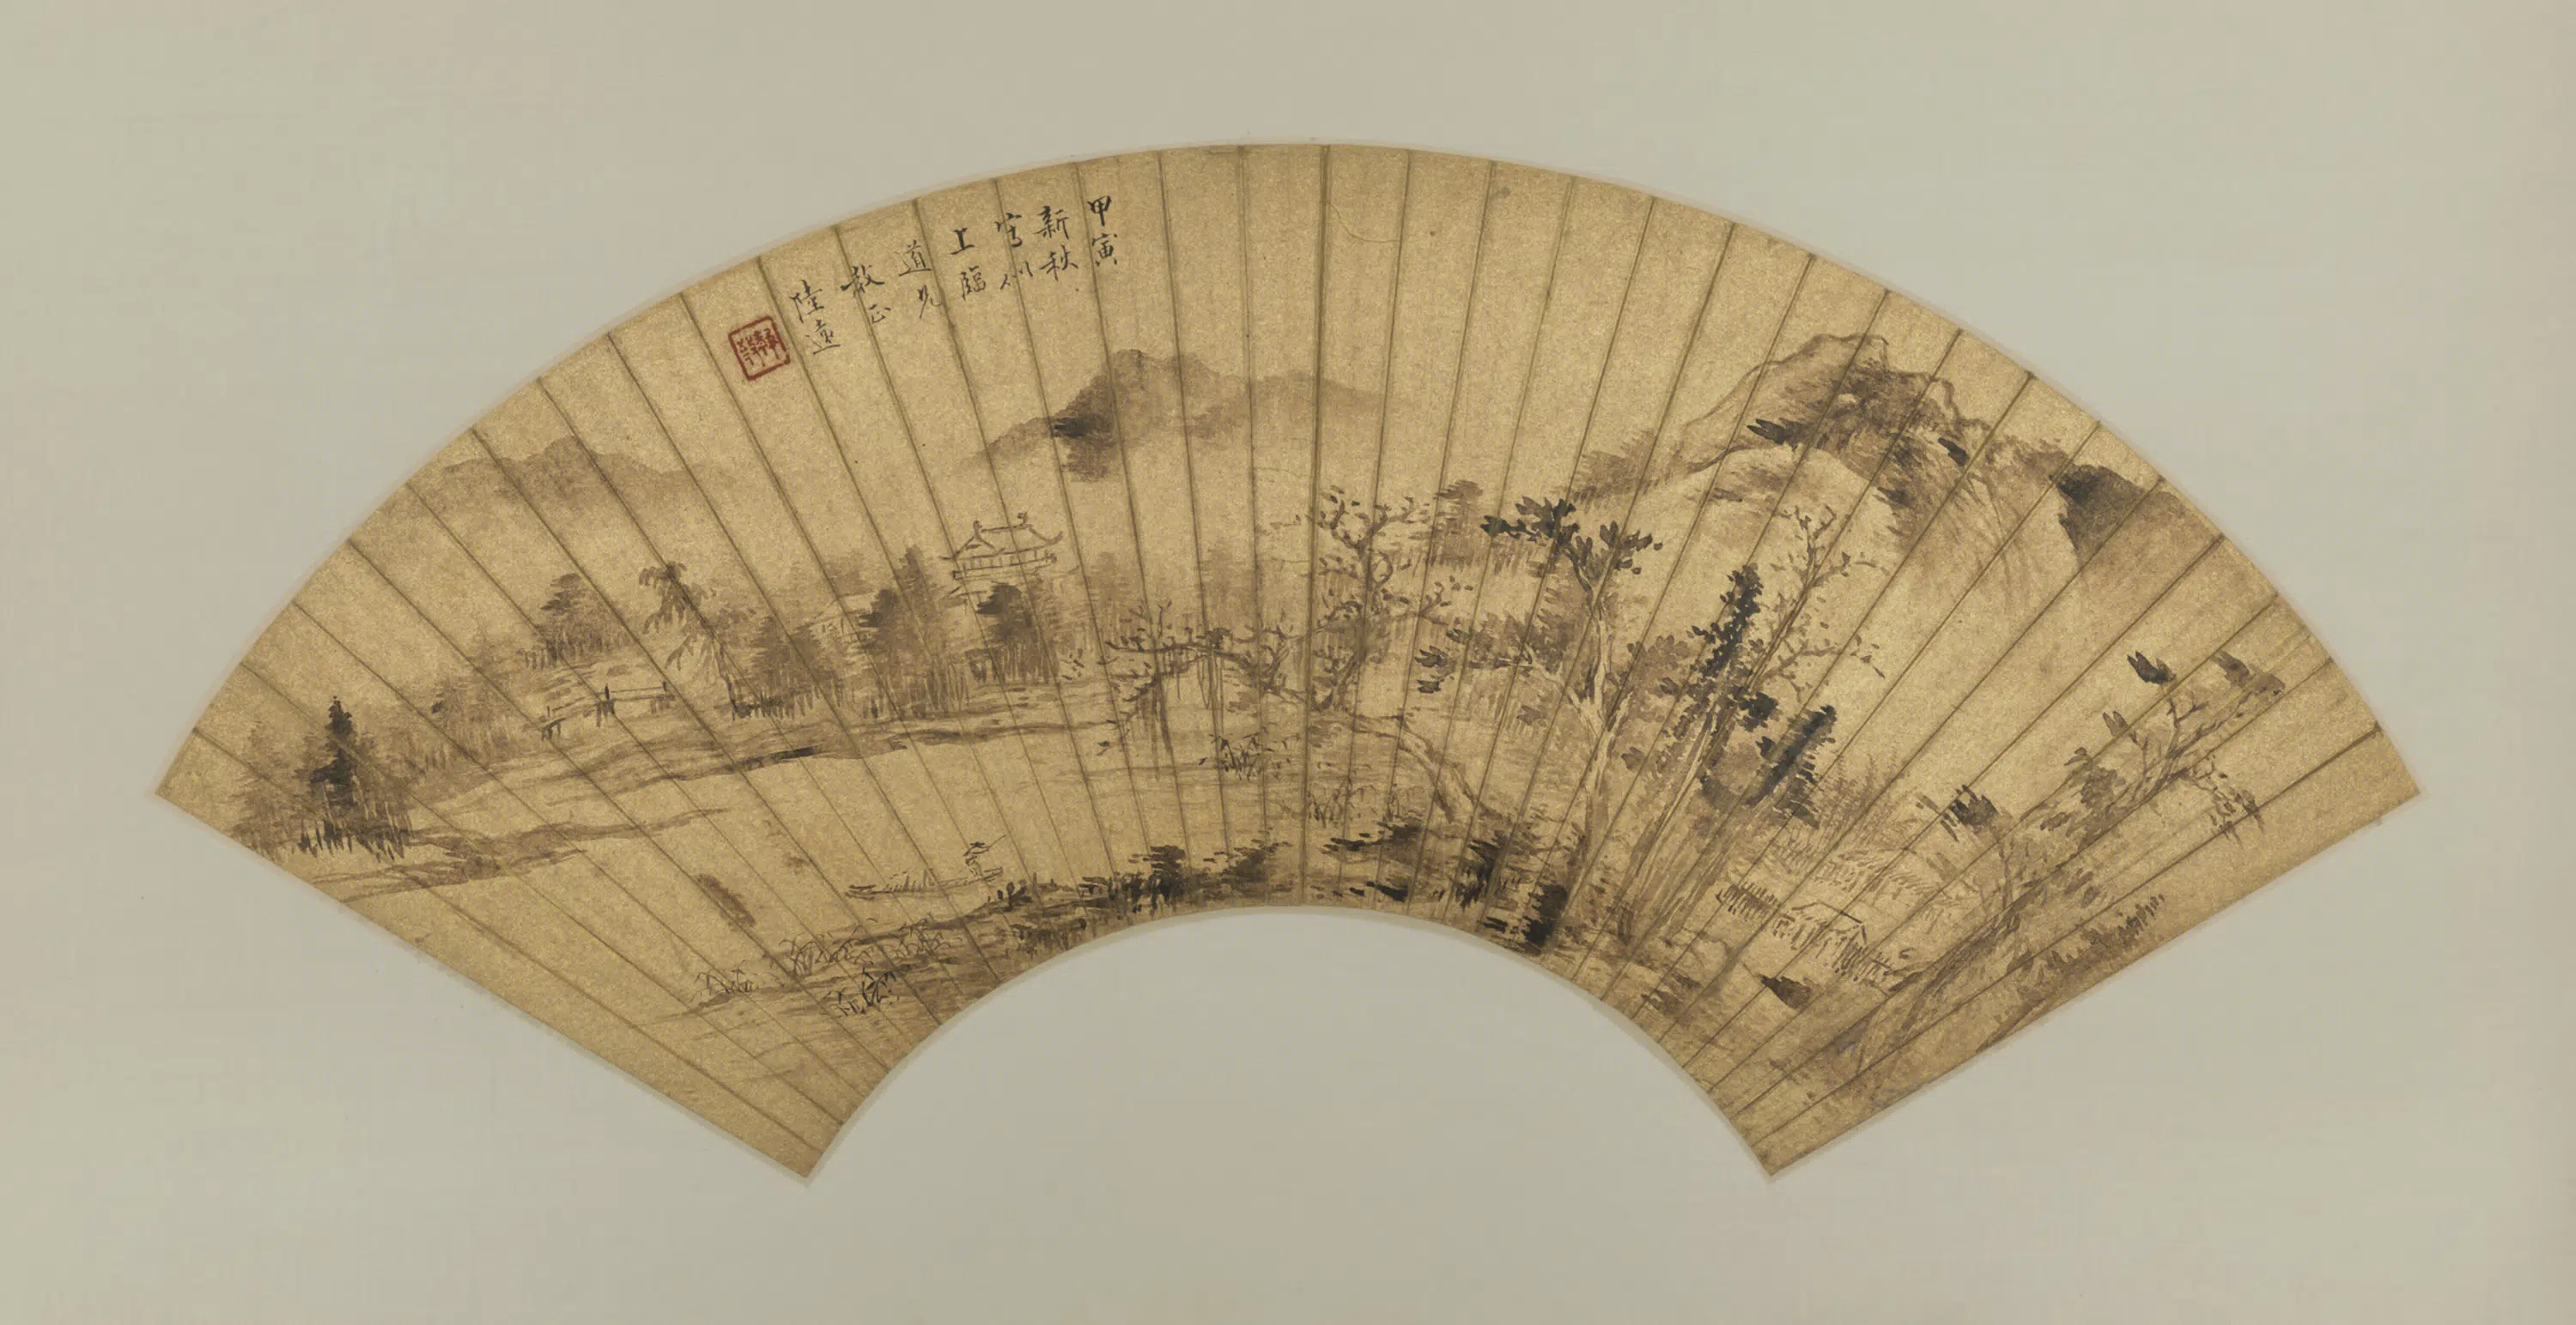 甲寅
新秋
寫似
上臨
道兄
教正
陸遠